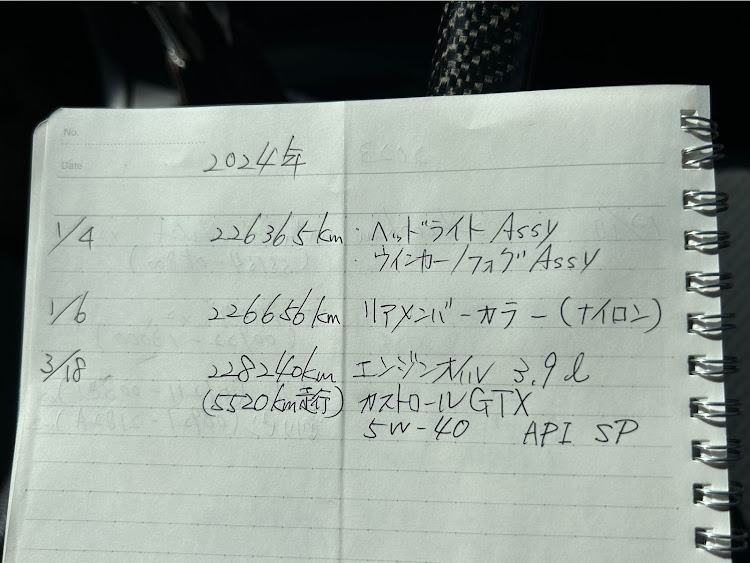 No.
Date
2024年
1/4 226365km ・ヘッドライト Assy
・ウインカー/フォグ Assy
1/6 226656km リアメンバーカラー(ナイロン)
3/18 228240km エンジンオイル 3.9ℓ
(5520km走行) カストロール GTX
5W-40 API SP